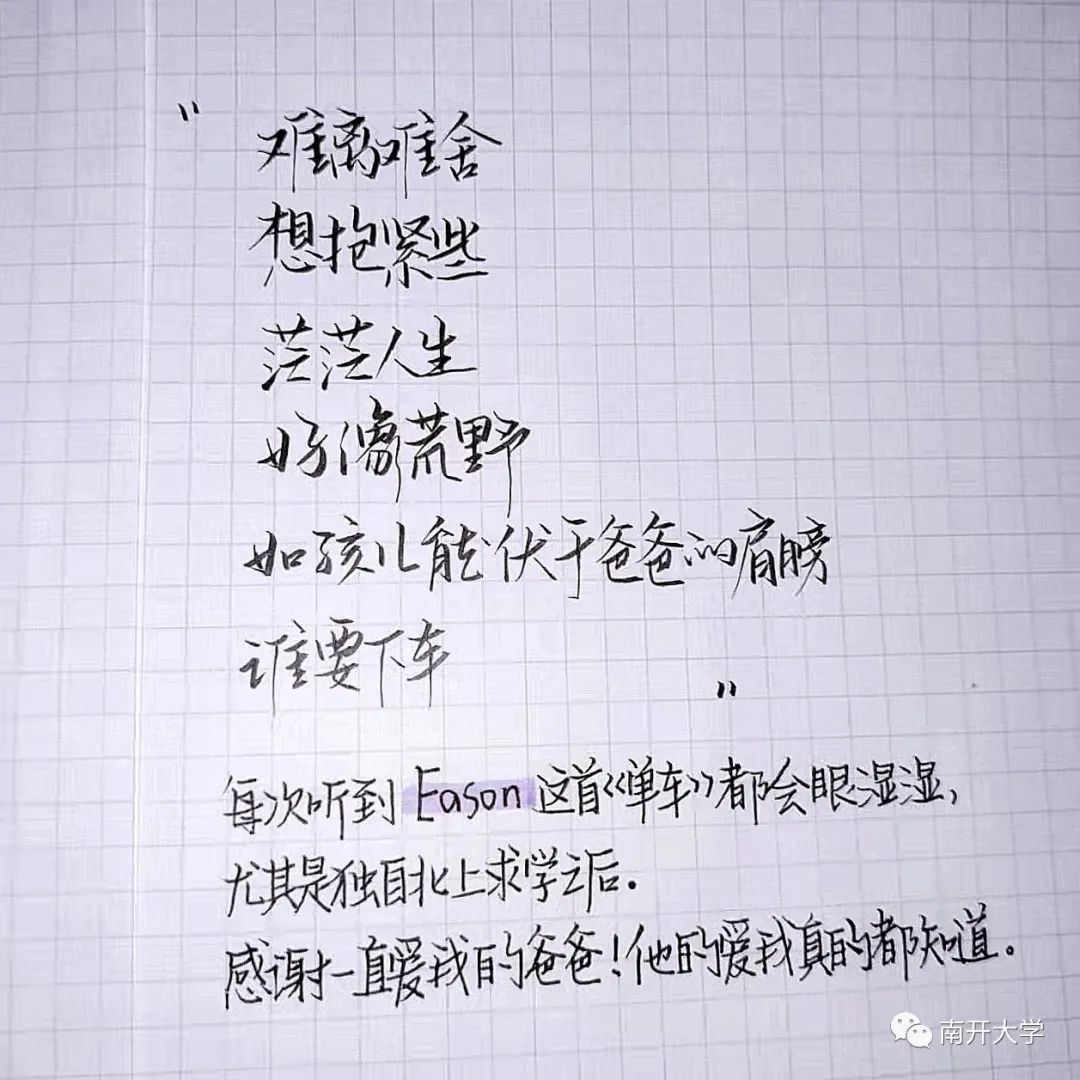 "难离难舍
想抱紧些
茫茫人生
好像荒野
如孩儿能伏于爸爸的肩膀
谁要下车"
每次听到Eason这首《单车》都会眼湿湿，
尤其是独自北上求学之后.
感谢一直爱我的爸爸！他的爱我真的都知道。
南开大学